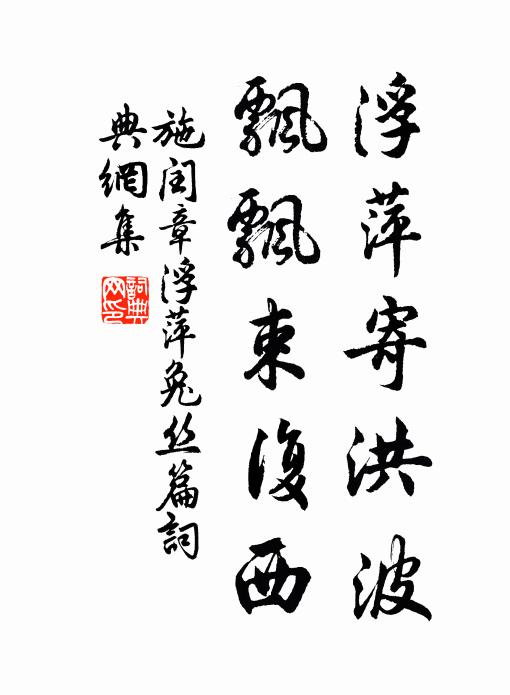 浮萍寄洪波
飄飄東復西
施閏章浮萍兔丝篇詞
典網集
詞典网印